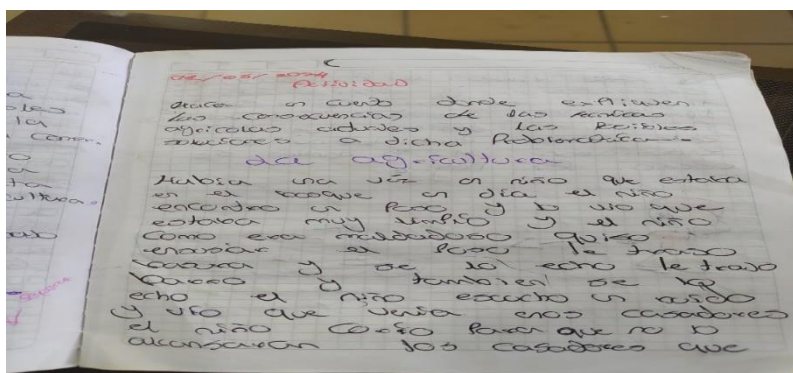 02/05/2024
Actividad
un cuento donde expliquen
las consecuencias de las tecnicas
agricolas actuales y las posibles
soluciones a dicha Problematica
La agricultura
Habia una vez un niño que estaba
en el bosque un dia el niño
encontro un Poso y lo vio que
estaba muy limpio y el niño
como era maldadoso quiso
ensusiar el Poso le trajo
basura y se lo echo le trajo
barro y tambien se lo
echo el niño escucho un ruido
y vio que venia unos casadores
el niño corrio Para que no lo
alcansaran los casadores que
la
comer.